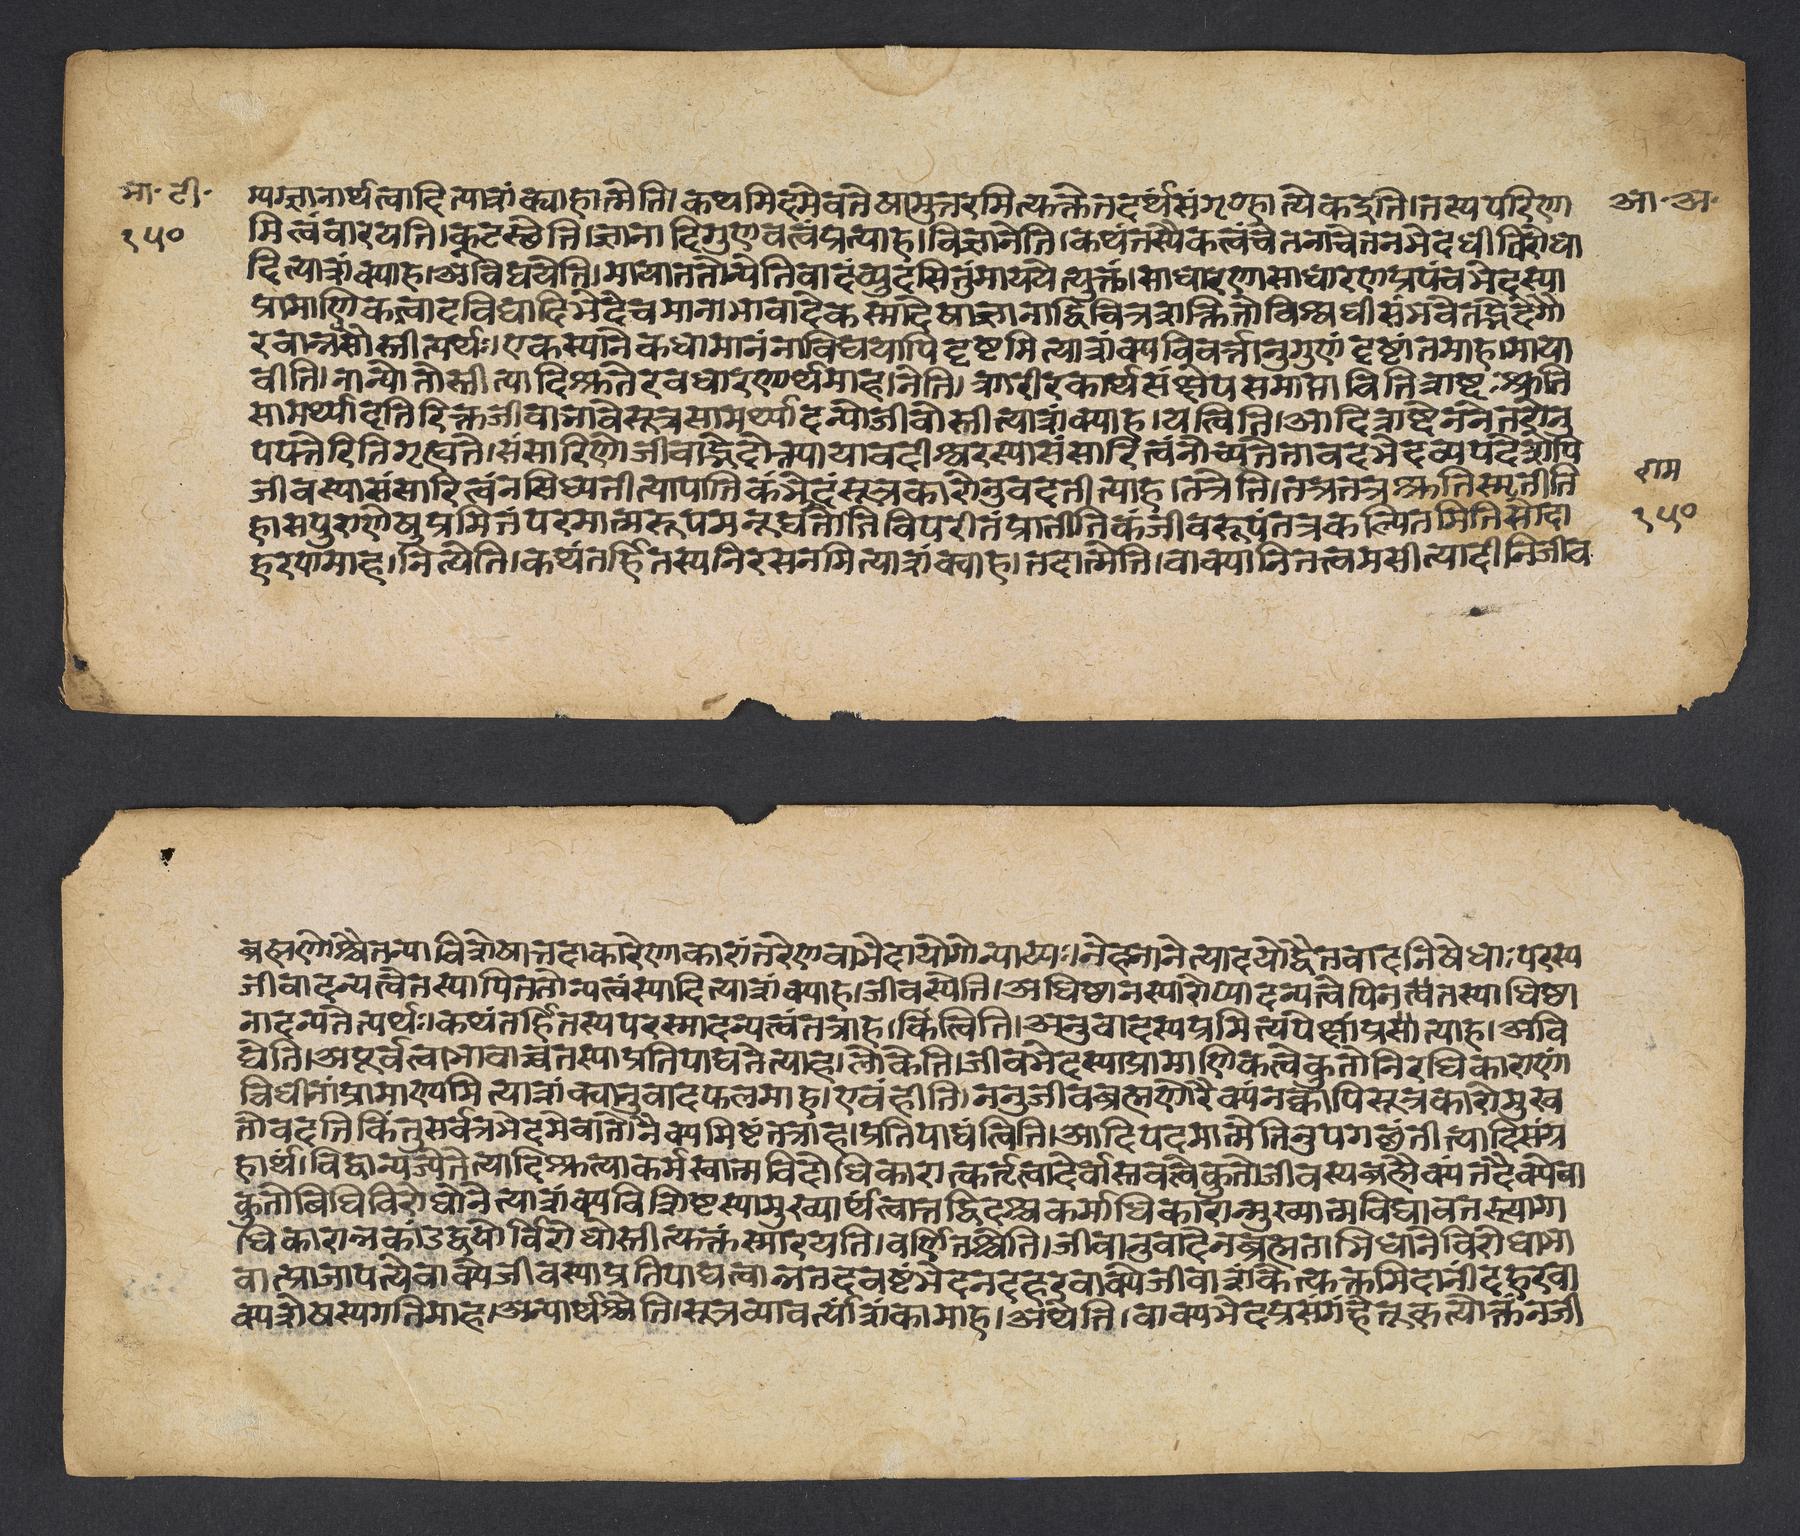 भा॰ टी॰
१५०
म्यग्ज्ञानार्थत्वादित्याशंक्याहात्मेति। कथमिदमेवतेषामुत्तरमित्यक्तेतदर्थंसंगृण्हात्येकइति।तस्यपरिणा
मित्वंवारयति।कूटस्छेति।ज्ञानादिगुणवत्वंप्रत्याह।विज्ञानेति।कथंतस्यैकत्वंचेतनाचेतनभेदधीविरोधा
दित्याशंक्याह।अविद्ययेति।मायाततोन्येतिवादंव्युदसितुंमाययेत्युक्तं।साधारणासाधारणप्रपंचभेदस्या
प्रामाणिकत्वादविद्यादिभेदेचमानाभावादेकस्मादेवाज्ञानाद्विचित्रशक्तितोविश्वधीसंभवेतद्भेदेगौ
रवान्नसोस्तीत्यर्थः।एकस्यानेकधाभानंनाविद्ययापिदृष्टमित्याशंक्यविवर्त्तानुगुणंदृष्टांतमाह।माया
वीति।नान्योतोस्तीत्यादिश्रुतेरवधारणार्थमाह।नेति।शारीरकार्थसंक्षेपसमाप्तावितिशब्दः श्रुति
सामर्थ्यादतिरिक्तजीवाभावेसूत्रसामर्थ्यादन्योजीवोस्तीत्याशंक्याह।यत्विति।आदिशब्देननेतरोनु
पपत्तेरितिगृह्यते।संसारिणोजीवाद्भेदोक्त्यायावदीश्वरस्यासंसारित्वंनोच्यतेतावदभेदव्यपदेशेपि
जीवस्यासंसारित्वंनसिध्यतीत्यापातिकंभेदंसूत्रकारोनुवदतीत्याह।तत्रेति।तत्रतत्रश्रुतिस्मृतीति
हासपुराणेषुप्रमितंपरमात्मरूपमनूद्यंतेतिविपरीतंप्रातीतिकंजीवरूपंतत्रकल्पितमितिसोदा
हरणमाह।नित्येति।कथंतर्हितस्यनिरसनमित्याशंक्याह।तदात्मेति।वाक्यानितत्वमसीत्यादीनिजीव
आ॰ अ॰
राम
१५०
ब्रह्मणोश्चैतन्याविशेषात्तदाकारेणाकारांतरेणवाभेदायोगोन्यायः।नेहनानेत्यादयोद्वैतवादनिषेधाःपरस्य
जीवादन्यत्वेतस्यापिततोन्यत्वंस्यादित्याशंक्याह।जीवस्येति।अधिष्ठानस्यारोप्यादन्यत्वेपिनत्वतस्याधिष्ठा
नादन्यतेत्यर्थः।कथंतर्हितस्यपरस्मादन्यत्वंतत्राह।किंत्विति।अनुवादस्यप्रमित्यपेक्षांप्रसात्याह।अवि
द्येति।अपूर्वत्वाभावाच्चतस्याप्रतिपाद्यतेत्याह।लोकेति।जीवभेदस्याप्रामाणिकत्वेकुतोनिरधिकाराणां
विधीनांप्रामाण्यमित्याशंक्यानुवादफलमाह।एवंहीति।ननुजीवब्रह्मणोरैक्यंनक्कापिसूत्रकारोमुख
तोवदतिकिंतुसर्वत्रभेदमेवातोनैक्यमिष्टंतत्राह।प्रतिपाद्यंत्विति।आदिपदमात्मेतिनुपगछंतीत्यादिसंग्र
हार्थं।विद्वान्यजेतेत्यादिश्रुत्याकर्मस्वात्मविदोधिकारात्कर्तृत्वादेर्वास्तवत्वेकुतोजीवस्यब्रह्मैक्यंतदैक्येवा
कुतोविधिविरोधोनेत्याशंक्यविशिष्टस्यामुख्यार्थत्वात्तद्विदश्चकर्माधिकारान्मुख्यात्मविद्यावतस्त्यागा
धिकारान्नकांडद्वयोर्विरोधोस्तीत्यक्तंस्मारयति।वर्णितश्चेति।जीवानुवादेनब्रह्मताभिधानेविरोधाभा
वात्प्राजापत्येवाक्येजीवस्याप्रतिपाद्यत्वान्नतदवष्टंभेदनदहरवाक्येजीवाशंकेत्यक्तमिदानींदहरवा
क्यशेषस्यगतिमाह।अन्यार्थश्चेति।सूत्रव्यावर्त्यांशंकामाह।अथेति।वाक्यभेदप्रसंगंहेतूकृत्योक्तंनजी